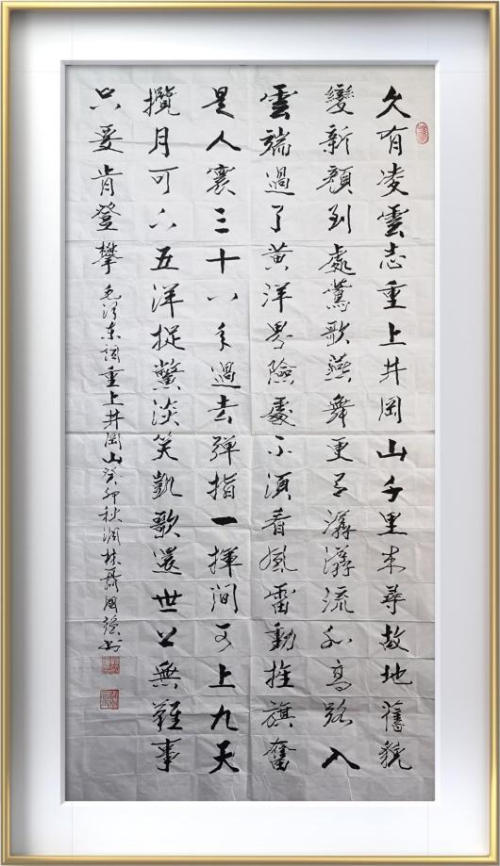 久有凌雲志重上井岡山千里來尋故地舊貌
變新顏到處鶯歌燕舞更有潺潺流水高路入
雲端過了黃洋界險處不須看風雷動旌旗奮
是人寰三十八年過去彈指一揮間可上九天
攬月可下五洋捉鱉談笑凱歌還世上無難事
只要肯登攀
毛澤東詞重上井岡山癸卯秋國強书